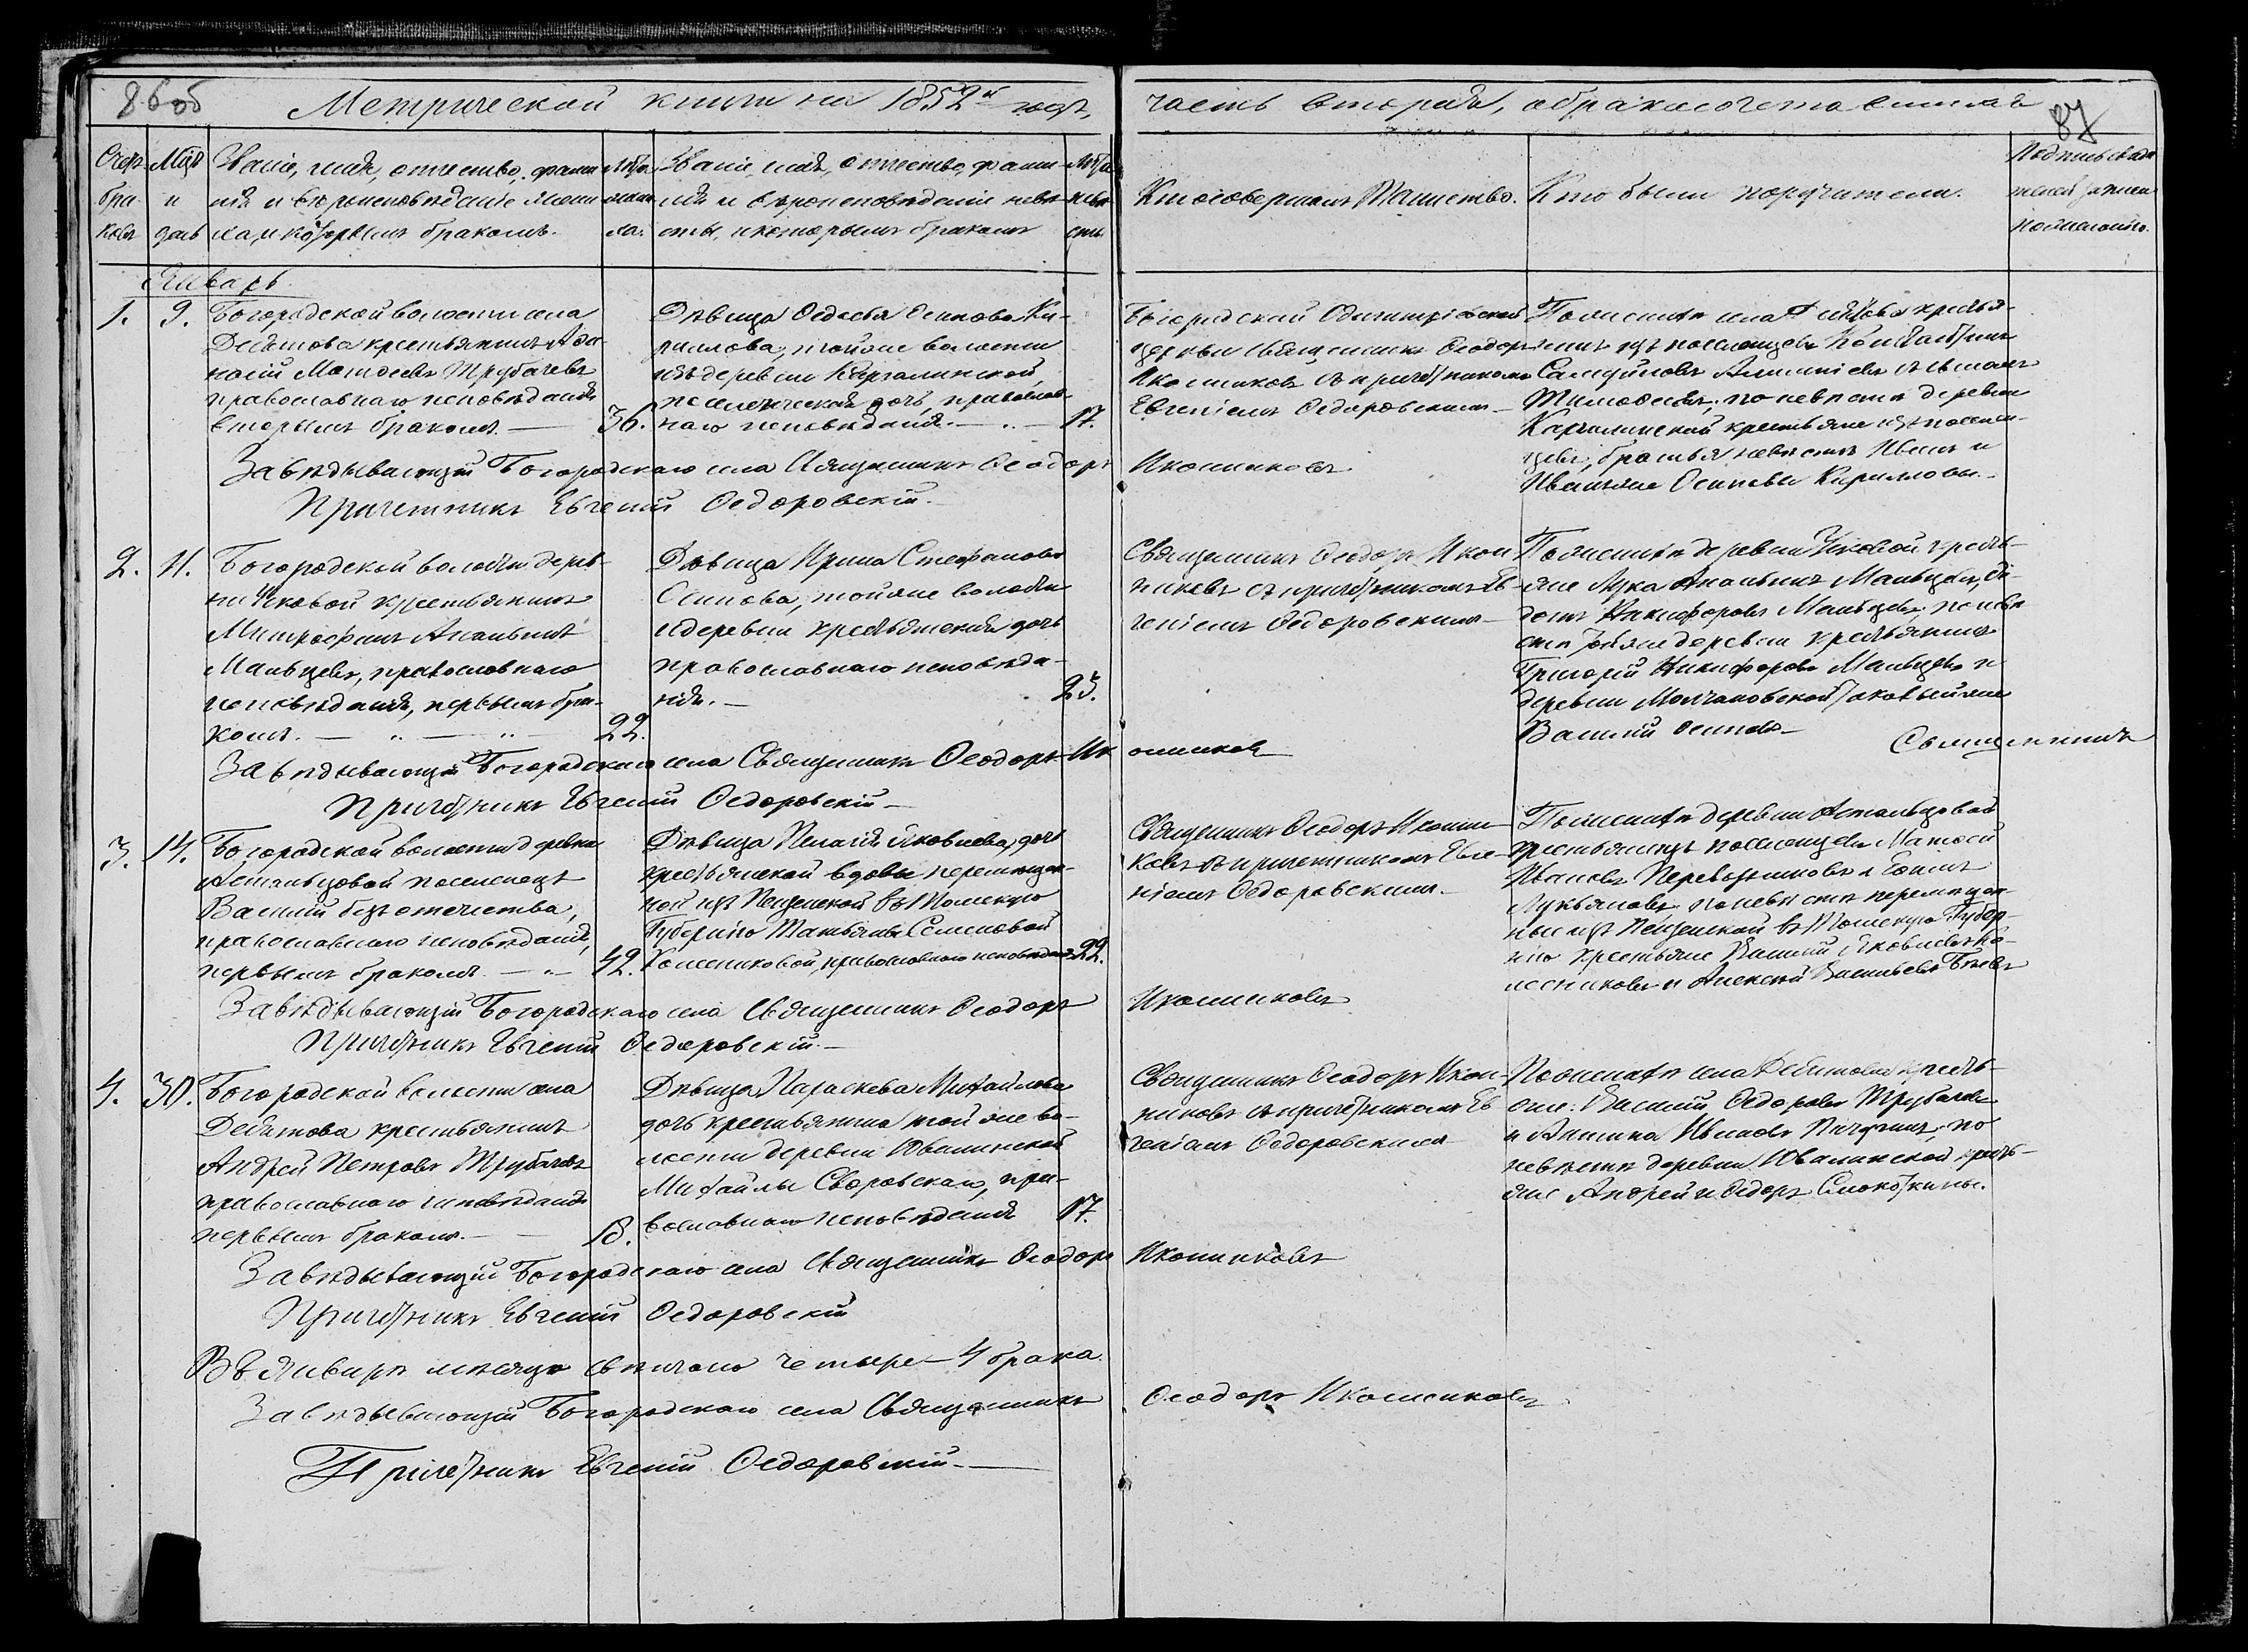 86 об
Метрической книги на 1852й годъ,
часть вторая, о бракосочетавшихся
87
Счетъ браковъ
Мѣся и день
Званіе, имя, отчество, фами
лія и вѣроисповѣданіе жени
ха, и которымъ бракомъ.
Лѣта жени
ха.
Званіе, имя, отчество, фами-
лія и вѣроисповѣданіе невѣ
сты, и которымъ бракомъ
Лѣта
невѣ
сты
Кто совершалъ Таинство.
Кто были поручители.
Подпись свидѣ
телей записи
по желанію.
Январь.
1.
9.
Богородской волости села
Десятова крестьянинъ Аѳа-
насій Матѳеевъ Трубачевъ
православнаго исповѣданія
вторымъ бракомъ.
36.
Дѣвица Ѳедосья Осипова Ки-
рилова, той же волости
изъ деревни Каргалинской,
поселенческая дочь, православ-
наго исповѣданія.
17.
Богородской Одигитріевской
церкви священникъ Ѳеодоръ
Иконниковъ съ причетникомъ
Евгеніемъ Ѳедоровскимъ
По женихѣ села Десятова крестья-
нинъ изъ поселенцевъ
Самуйловъ
Тимоѳеевъ; по невѣстѣ деревни
Каргалинской крестьяне изъ поселен-
цевъ, братья невѣсты Иванъ и
Иванъ же Осиповы Кириловы.
Завѣдывающій Богородскаго села Священникъ Ѳеодоръ Иконниковъ
Причетникъ Евгеній Ѳедоровскій.
2.
11.
Богородской волости дерев-
ни крестьянинъ
Митрофанъ Ананьинъ
Мальцевъ, православнаго
исповѣданія, первымъ бра-
комъ.
22.
Дѣвица Ирина Стефанова
Осипова, той же волости
и деревни крестьянская дочь
православнаго исповѣда-
нія.
25.
Священникъ Ѳеодоръ Икон
никовъ съ причетникомъ Ев-
геніемъ Ѳедоровскимъ
По женихѣ деревни крестья-
не Лука Ананьинъ Мальцевъ,
Никифоровъ Мальцевъ; по невѣ
стѣ той же деревни крестьянинъ
Григорій Никифоровъ Мальцевъ и
деревни Молчановской таковый же
Василій Осиповъ
Священникъ
Завѣдывающій Богородскаго села Священникъ Ѳеодоръ Иконниковъ
Причетникъ Евгеній Ѳедоровскій
3.
14.
Богородской волости деревни
Астальцовой поселенецъ
Василій безъ отечества,
православнаго исповѣданія,
первымъ бракомъ.
42.
Дѣвица Пелагія Яковлева, дочь
крестьянской вдовы перемѣщен-
ной изъ Пензенской въ Томскую
Губернію Татьяны Семеновой
Колесниковой, православнаго исповѣданія
22.
Священникъ Ѳеодоръ Иконни
ковъ съ причетникомъ Евге-
ніемъ Ѳедоровскимъ.
По женихѣ деревни Астальцовой
крестьяне изъ поселенцевъ Матѳей
Ивановъ Перевозчиковъ и
Лукьяновъ; по невѣстѣ перемѣщен
ные изъ Пензенской въ Томскую Губер-
нію крестьяне Василій Яковлевъ Ко-
лесниковъ и Алексей Васильевъ
Завѣдывающій Богородскаго села Священникъ Ѳеодоръ Иконниковъ
Причетникъ Евгеній Ѳедоровскій.
4.
30.
Богородской волости села
Десятова крестьянинъ
Андрей Петровъ Трубачевъ
православнаго исповѣданія
первымъ бракомъ.
18.
Дѣвица Параскева Михайлова
дочь крестьянина той же во-
лости деревни Ювалинской
Михайлы Своровскаго, пра-
вославнаго исповѣданія
17.
Священникъ Ѳеодоръ Икон-
никовъ съ причетникомъ Ев
геніемъ Ѳедоровскимъ
По женихѣ села Десятова кресть-
яне: Василій Ѳедоровъ Трубачевъ
и Ивановъ по
невѣстѣ деревни Ювалинской кресть-
яне Андрей и Ѳедоръ
Завѣдывающій Богородскаго села Священникъ Ѳеодоръ Иконниковъ
Причетникъ Евгеній Ѳедоровскій
Въ январѣ мѣсяцѣ свѣнчано четыре 4 брака.
Завѣдывающій Богородскаго села Священникъ Ѳеодоръ Иконниковъ
Причетникъ Евгеній Ѳедоровскій.